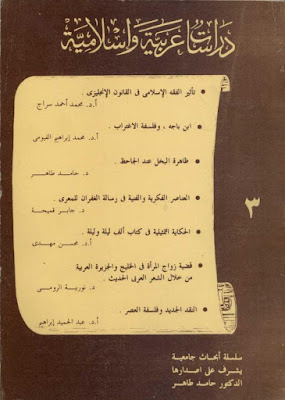 دراسات عربية وإسلامية
• تأثير الفقه الإسلامى فى القانون الإنجليزى .
أ.د. محمد أحمد سراج
• ابن باجه ، وفلسفة الاغتراب .
أ.د. محمد إبراهيم الفيومى
• ظاهرة البخل عند الجاحظ .
د. حامد طاهر
• العناصر الفكرية والفنية فى رسالة الغفران للمعرى .
د. جابر قميحة
• الحكاية التمثيلية فى كتاب ألف ليلة وليلة .
أ.د. محسن مهدى
• قضية زواج المرأة فى الخليج والجزيرة العربية
من خلال الشعر العربى الحديث .
د. نورية الرومى
• النقد الجديد وفلسفة العصر .
أ.د. عبد الحميد إبراهيم
٣
سلسلة أبحاث جامعية
يشرف على اصدارها
الدكتور حامد طاهر